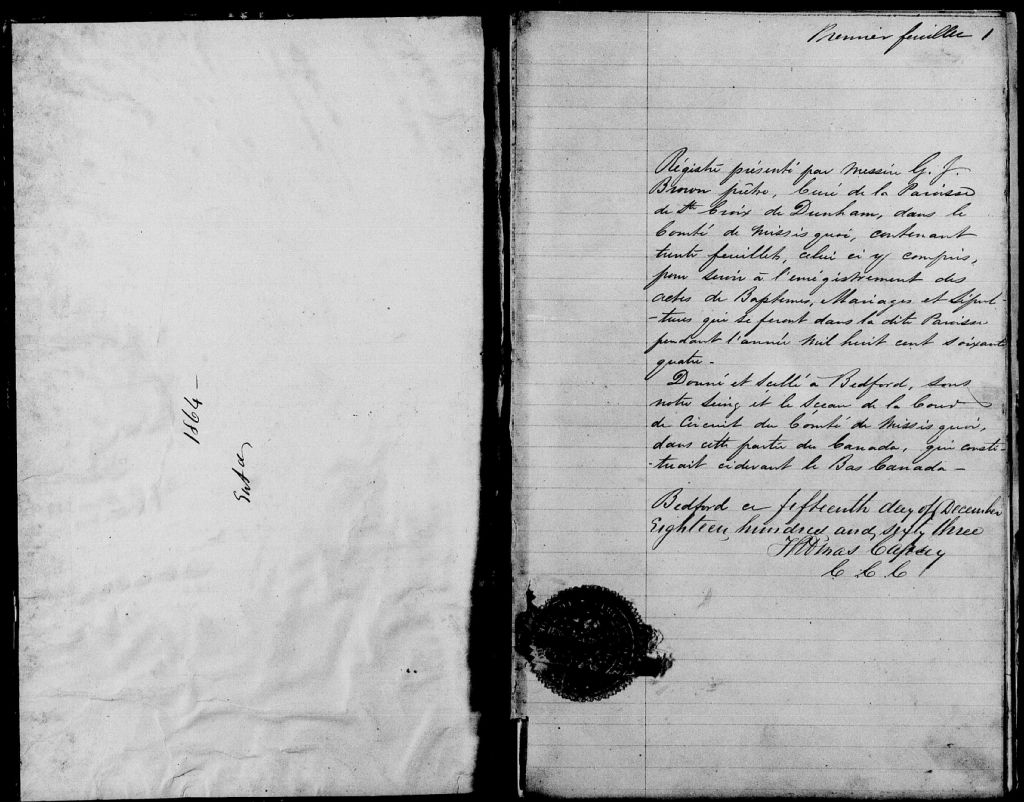 1864 -
Premier feuillet 1
Régistre présenté par Messire G. J.
Brown prêtre, Curé de la Paroisse
de Ste Croix de Dunham, dans le
Comté de Missisquoi, contenant
trente feuillets, celui ci y compris,
pour servir à l'enrégistrement des
actes de Baptemes, Mariages et Sépul-
-tures qui se feront dans la dite Paroisse
pendant l'année Mil huit cent soixante
quatre -
Donné et Scellé à Bedford, sous
notre Seing et le Sceau de la Cour
de Circuit du Comté de Missisquoi,
dans cette partie du Canada, qui consti-
-tuait cidevant le Bas Canada -
Bedford ce fifteenth day of December
Eighteen hundred and sixty three
Thomas
C. C. C.